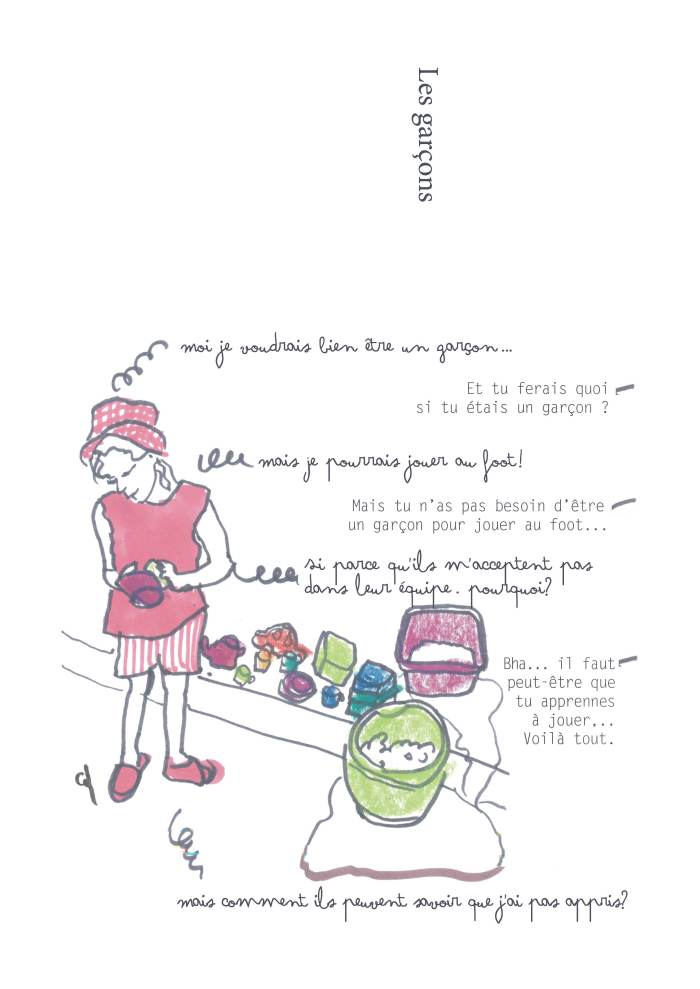 Les garçons
moi je voudrais bien être un garçon...
Et tu ferais quoi
si tu étais un garçon ?
mais je pourrais jouer au foot!
Mais tu n'as pas besoin d'être
un garçon pour jouer au foot...
si parce qu'ils m'acceptent pas
dans leur équipe. pourquoi?
Bha... il faut
peut-être que
tu apprennes
à jouer...
Voilà tout.
mais comment ils peuvent savoir que j'ai pas appris?